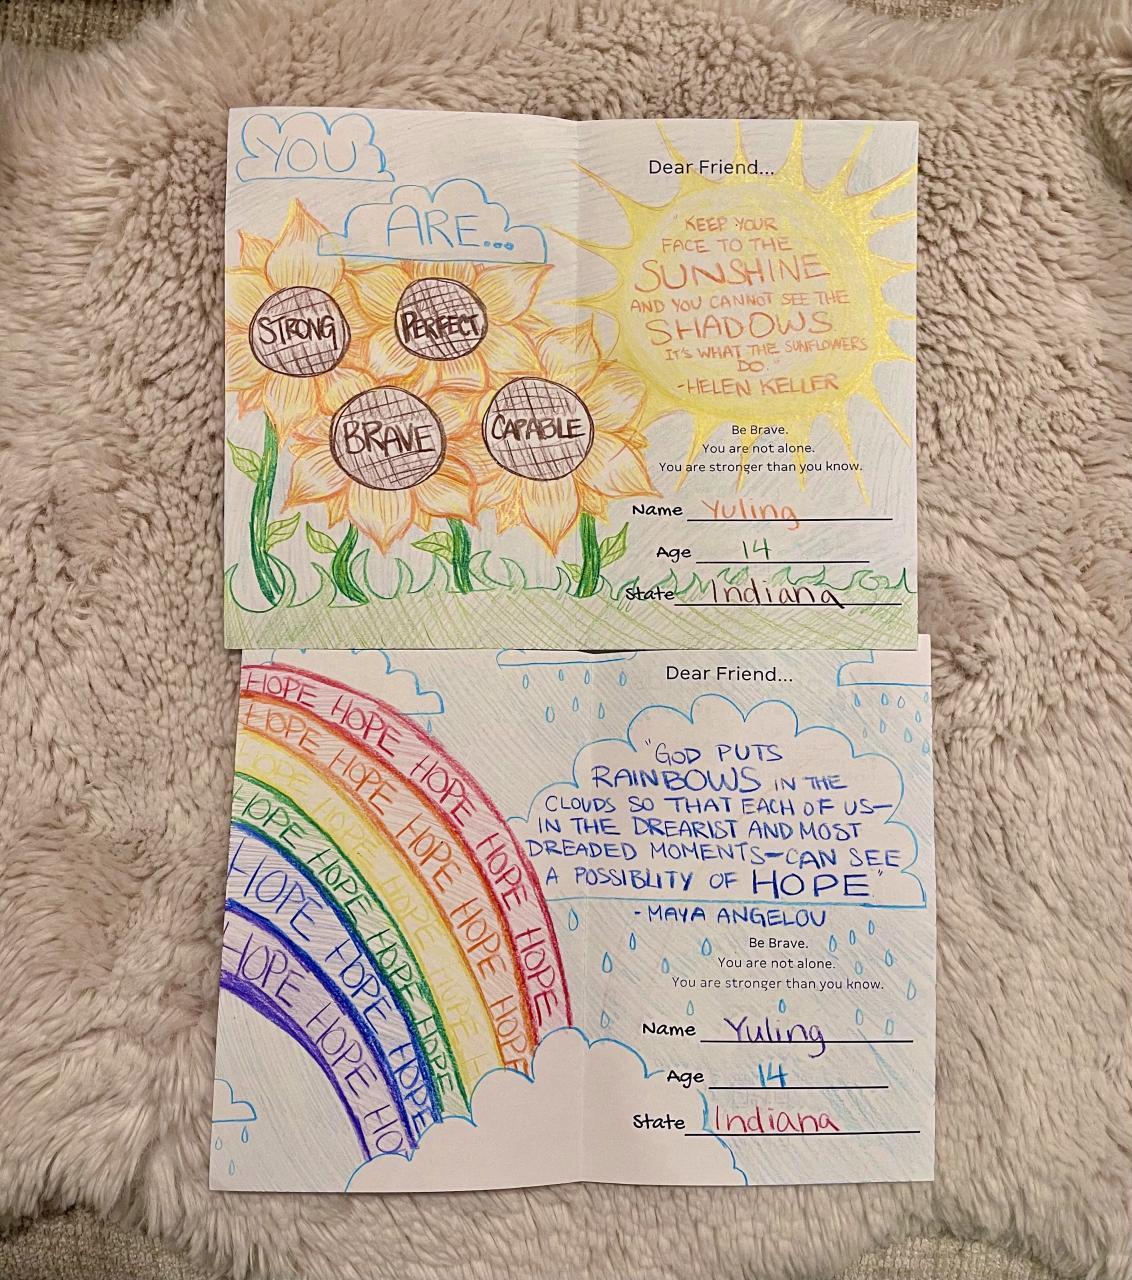 YOU
ARE...
STRONG
PERFECT
BRAVE
CAPABLE
Dear Friend...
"KEEP YOUR
FACE TO THE
SUNSHINE
AND YOU CANNOT SEE THE
SHADOWS
IT'S WHAT THE SUNFLOWERS
DO."
-HELEN KELLER
Be Brave.
You are not alone.
You are stronger than you know.
Name Yuling
Age 14
State Indiana
HOPE HOPE HOPE HOPE HOPE
HOPE HOPE HOPE HOPE HOPE
HOPE HOPE HOPE HOPE
HOPE HOPE HOPE HOPE
HOPE HOPE HOPE
HOPE HOPE HO
Dear Friend...
"GOD PUTS
RAINBOWS IN THE
CLOUDS SO THAT EACH OF US—
IN THE DREARIST AND MOST
DREADED MOMENTS—CAN SEE
A POSSIBLITY OF HOPE."
-MAYA ANGELOU
Be Brave.
You are not alone.
You are stronger than you know.
Name Yuling
Age 14
State Indiana